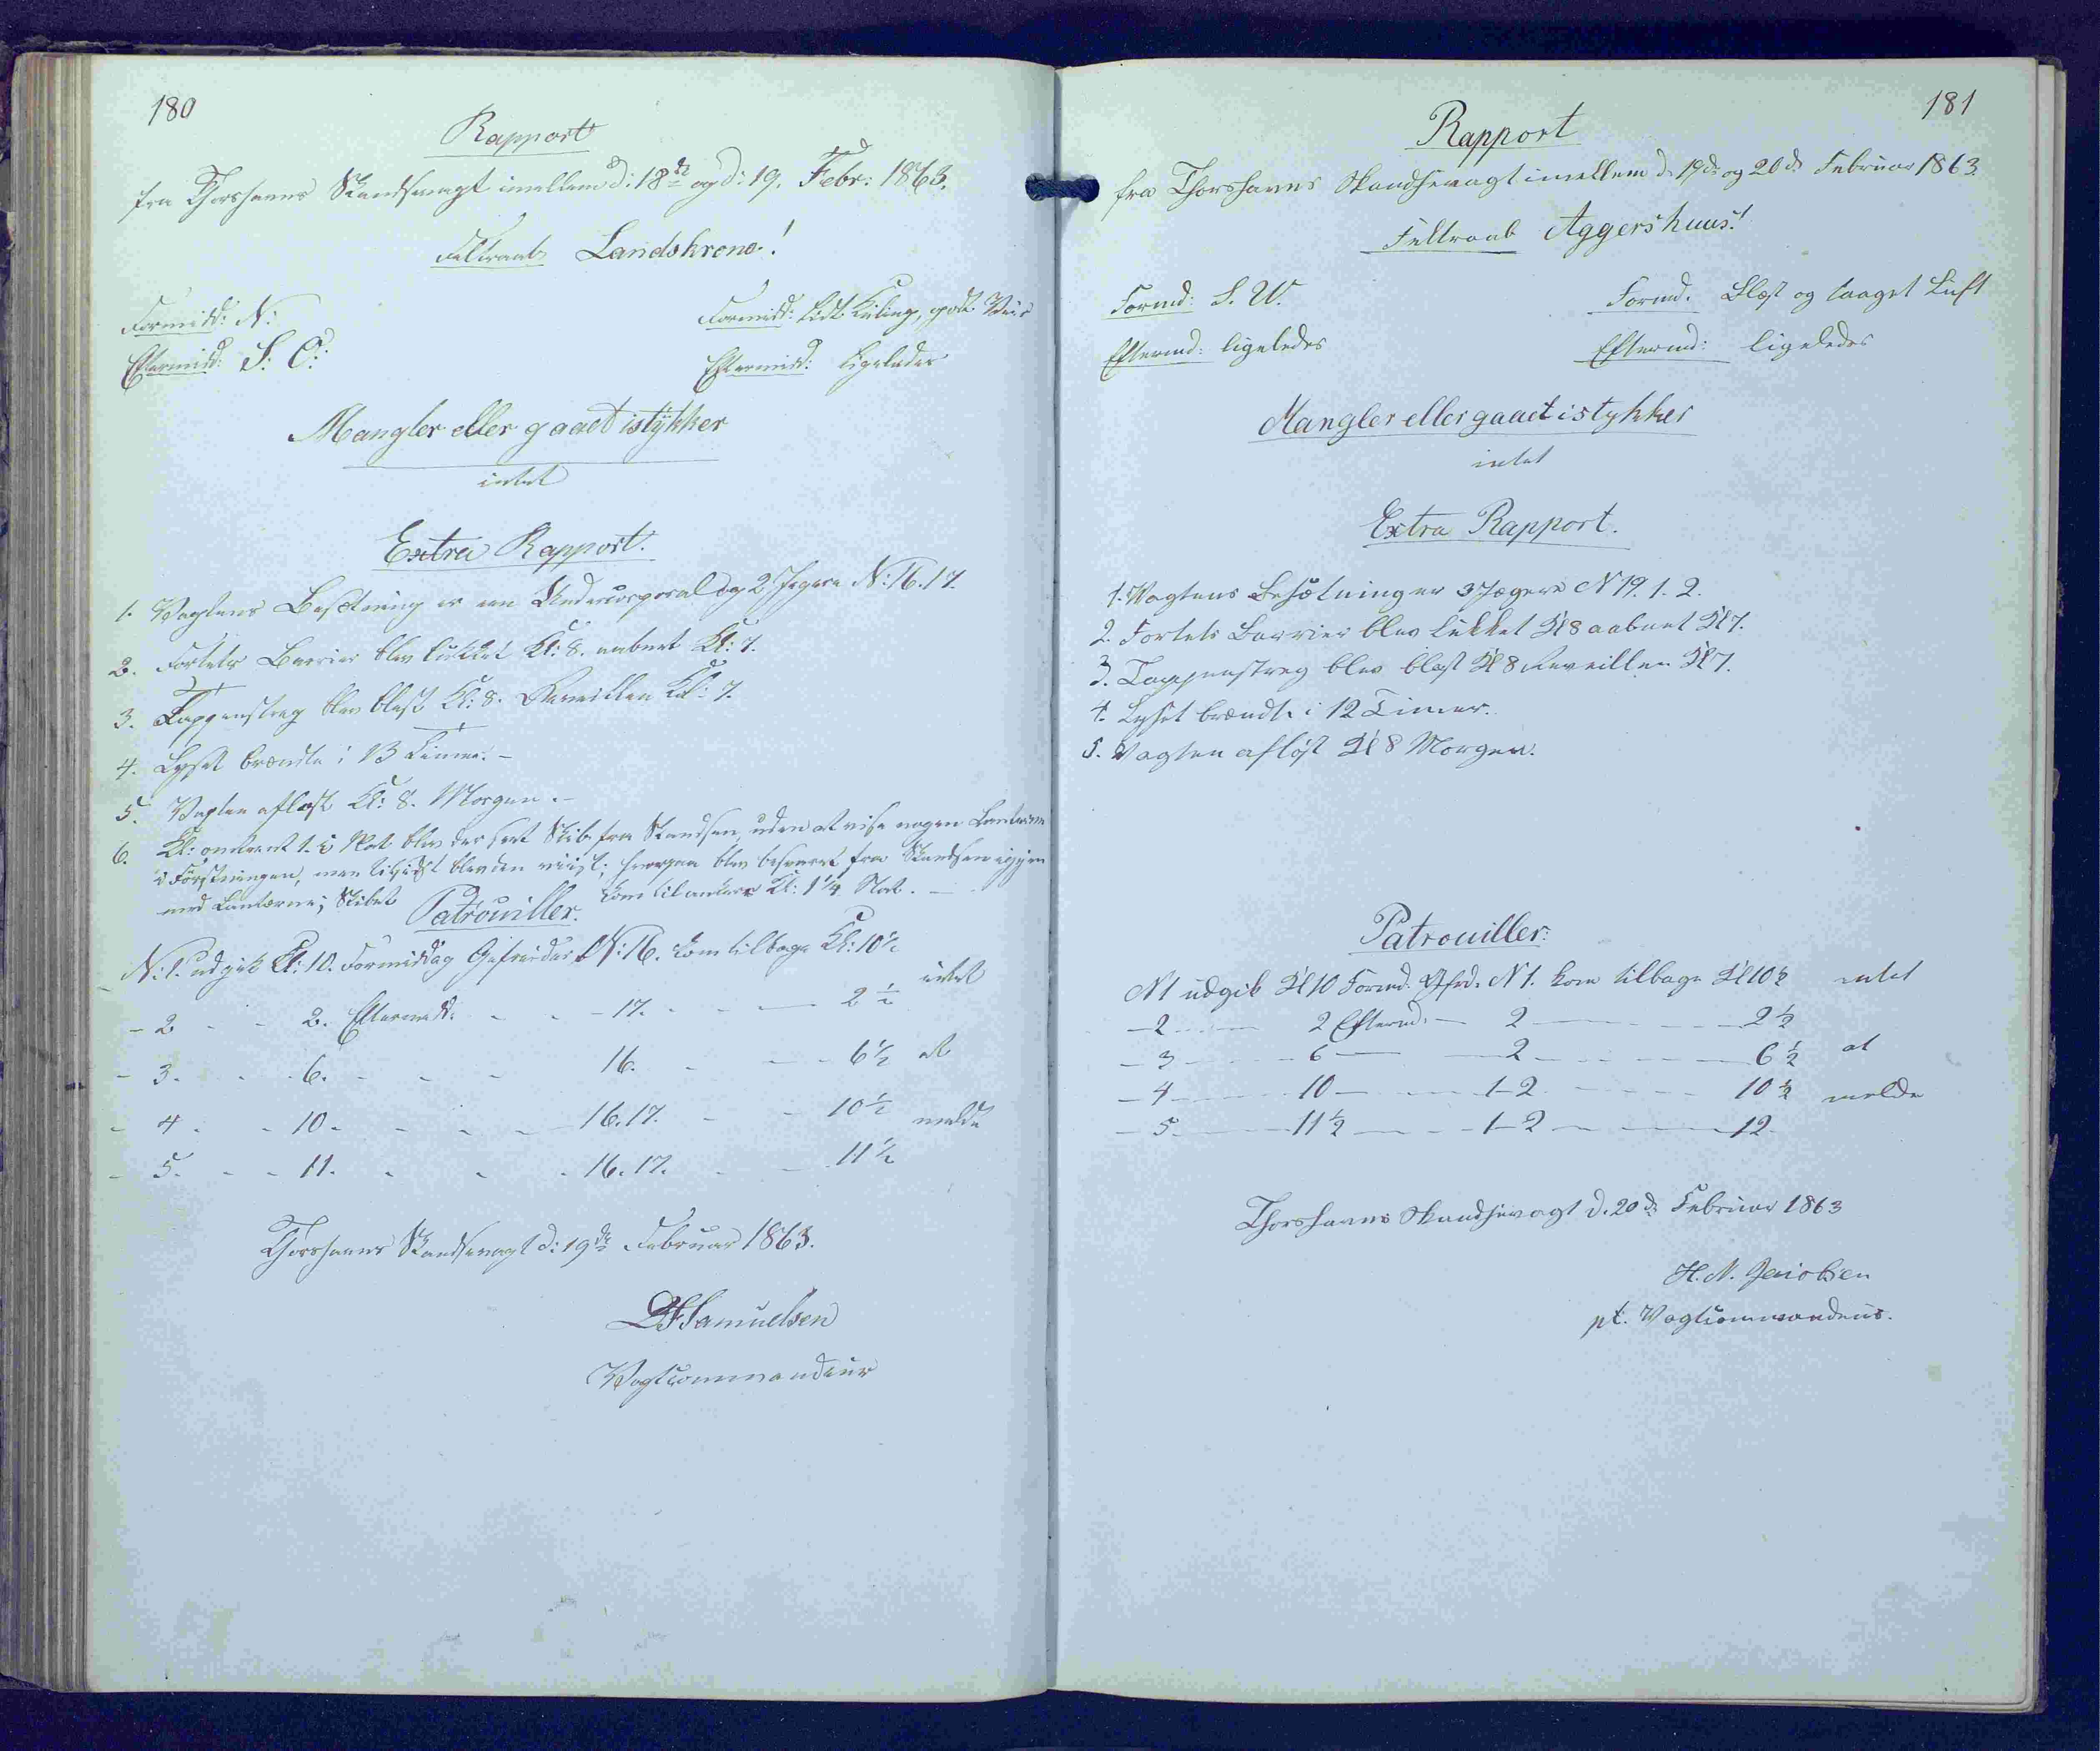 180
Rapport
fra Thorshavns Skandsevagt imellem d: 18de og d: 19. Febr: 1863.
Feltraab Landskrone!
Formidd: N: Formidd: lidt Kuling, godt Veir
Eftermidd: S: O: Eftermidd: ligeledes
Mangler eller gaaet istykker
intet
Extra Rapport.
1. Vagtens Besætning er en Undercorporal og 2 Jægere N: 16. 17.
2. Fortets Barrier blev lukket Kl: 8. aabnet Kl: 7.
3. Tappenstreg blev blæst Kl: 8. Reveillen Kl: 7.
4. Lyset brændte i 13 Timer. -
5. Vagten afløst Kl: 8. Morgen. -
6. Kl: omtrent 1. i Nat blev der seet Skib fra Skandsen, uden at vise nogen Lanterne
i Førstningen, men tilsidst blev den viist, hvorpaa blev besvaret fra Skandsen igjen
med Lanterne; Skibet kom til ankers Kl: 1 1/4 Nat. -
Patrouiller.
N: 1. udgik Kl: 10. Formiddag Gefreider N: 16. kom tilbage Kl: 10½
intet
- 2 - - 2. Eftermidd: - - - 17. - - 2½
- 3. - - 6. - - - 16. - - 6½ at
- 4 - - 10 - - - - 16. 17. - - 10½ melde
- 5. - - 11. - - - 16. 17. - - 11½
Thorshavns Skandsevagt d: 19de Februar 1863.
Samuelsen
Vagtcommandeur
181
Rapport
fra Thorshavns Skandsevagt imellem d. 19de og 20de Februar 1863.
Feltraab Aggershuus!
Formd: S. W. Formd. Blæst og taaget Luft
Eftermd: ligeledes Eftermd: ligeledes
Mangler eller gaaet istykker
intet
Extra Rapport.
1. Vagtens Besætning er 3 Jægere N 19. 1. 2.
2. Fortets Barrier blev lukket Kl 8 aabnet Kl 7.
3. Tappenstreg blev blæst Kl 8 Reveillen Kl 7.
4. Lyset brændte i 12 Timer.
5. Vagten afløst Kl 8 Morgen.
Patrouiller:
N 1 udgik Kl 10 Formd. Gfrd. N 1. kom tilbage Kl 10½ intet
- 2 - - 2 Eftermd: - 2 - - 2½
- 3 - - 6 - - 2 - - 6½ at
- 4 - - 10 - - 1-2 - - 10½ melde
- 5 - - 11½ - - 1-2 - - 12
Thorshavns Skandsevagt d. 20de Februar 1863
H. N. Jacobsen
pt. Vagtcommandeur.